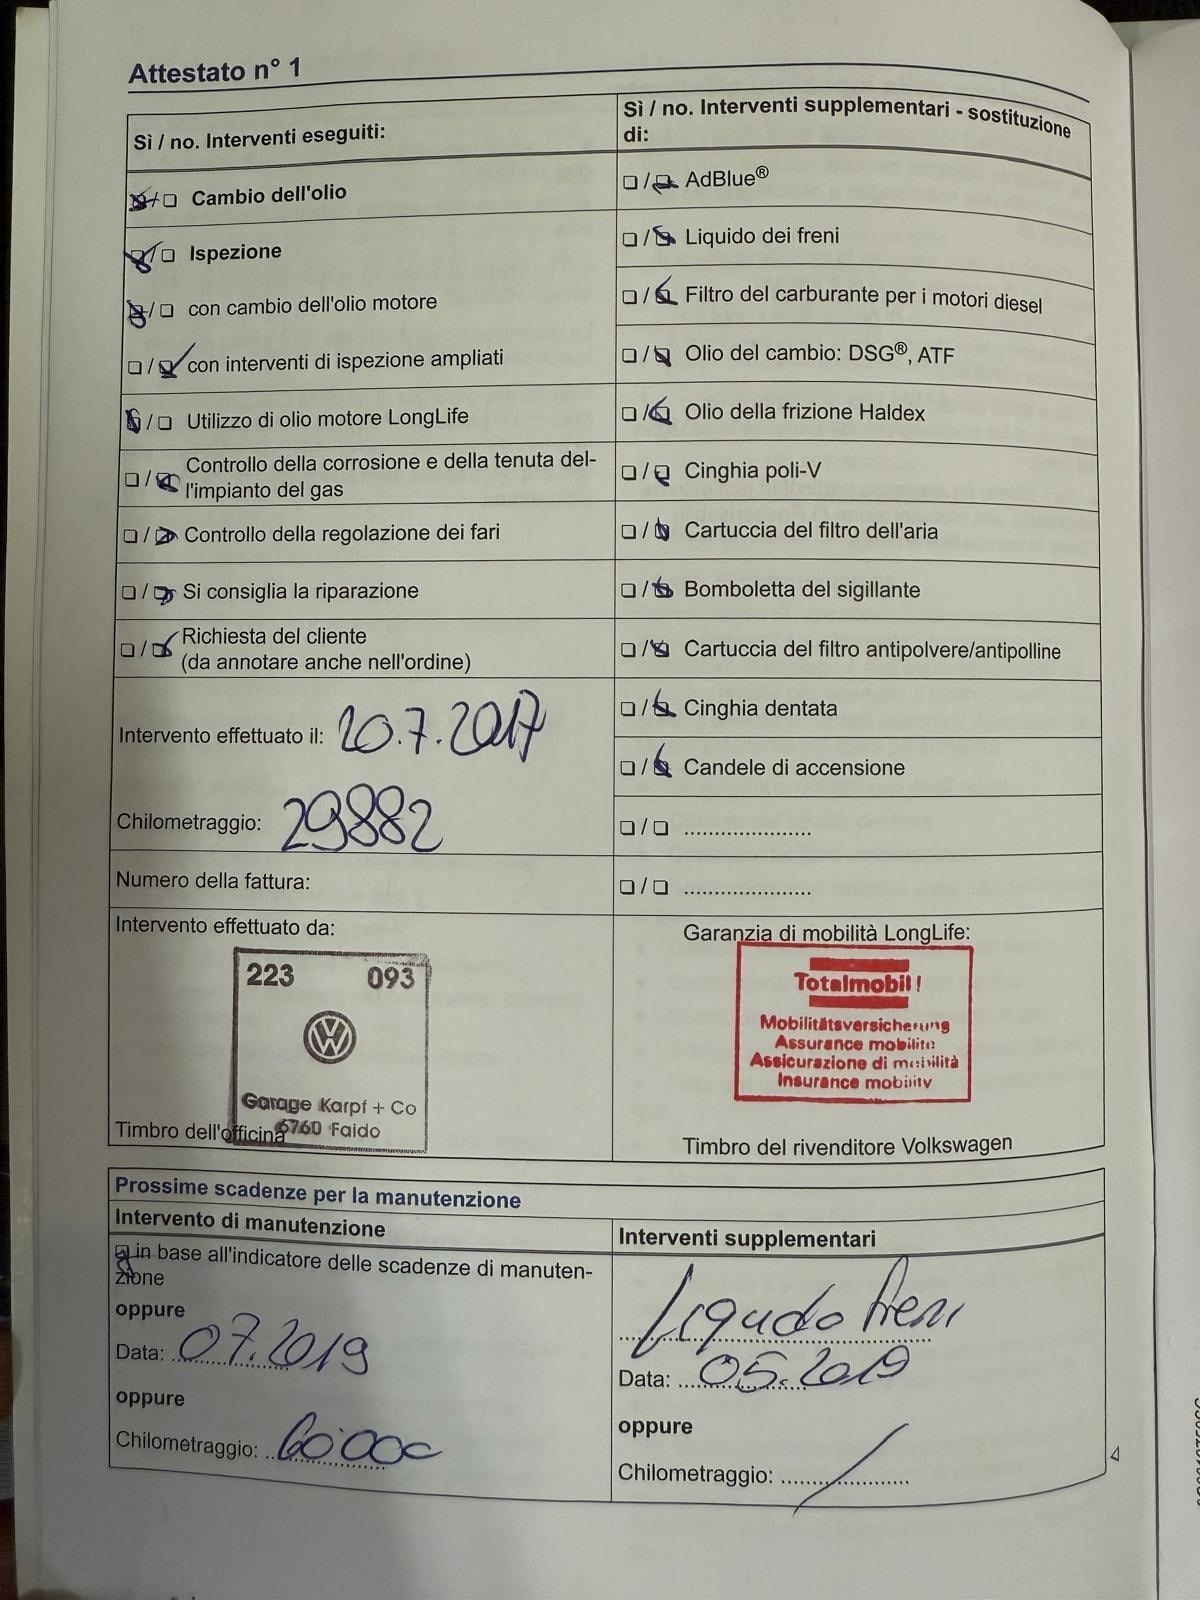 Attestato n° 1
Sì / no. Interventi eseguiti:
❏/❏ Cambio dell'olio
❏/❏ Ispezione
❏/❏ con cambio dell'olio motore
❏/❏ con interventi di ispezione ampliati
❏/❏ Utilizzo di olio motore LongLife
❏/❏ Controllo della corrosione e della tenuta del-
l'impianto del gas
❏/❏ Controllo della regolazione dei fari
❏/❏ Si consiglia la riparazione
❏/❏ Richiesta del cliente
(da annotare anche nell'ordine)
Intervento effettuato il: 20.7.2017
Chilometraggio: 29882
Numero della fattura:
Sì / no. Interventi supplementari - sostituzione
di:
❏/❏ AdBlue®
❏/❏ Liquido dei freni
❏/❏ Filtro del carburante per i motori diesel
❏/❏ Olio del cambio: DSG®, ATF
❏/❏ Olio della frizione Haldex
❏/❏ Cinghia poli-V
❏/❏ Cartuccia del filtro dell'aria
❏/❏ Bomboletta del sigillante
❏/❏ Cartuccia del filtro antipolvere/antipolline
❏/❏ Cinghia dentata
❏/❏ Candele di accensione
❏/❏ .....................
❏/❏ .....................
Intervento effettuato da:
223 093
VW
Garage Karpf + Co
6760 Faido
Timbro dell'officina
Garanzia di mobilità LongLife:
Totalmobil!
Mobilitätsversicherung
Assurance mobilité
Assicurazione di mobilità
Insurance mobility
Timbro del rivenditore Volkswagen
Prossime scadenze per la manutenzione
Intervento di manutenzione
❏ in base all'indicatore delle scadenze di manuten-
zione
oppure
Data: 07.2019
oppure
Chilometraggio: 60'000
Interventi supplementari
Liquido freni
Data: 05.2019
oppure
Chilometraggio: /